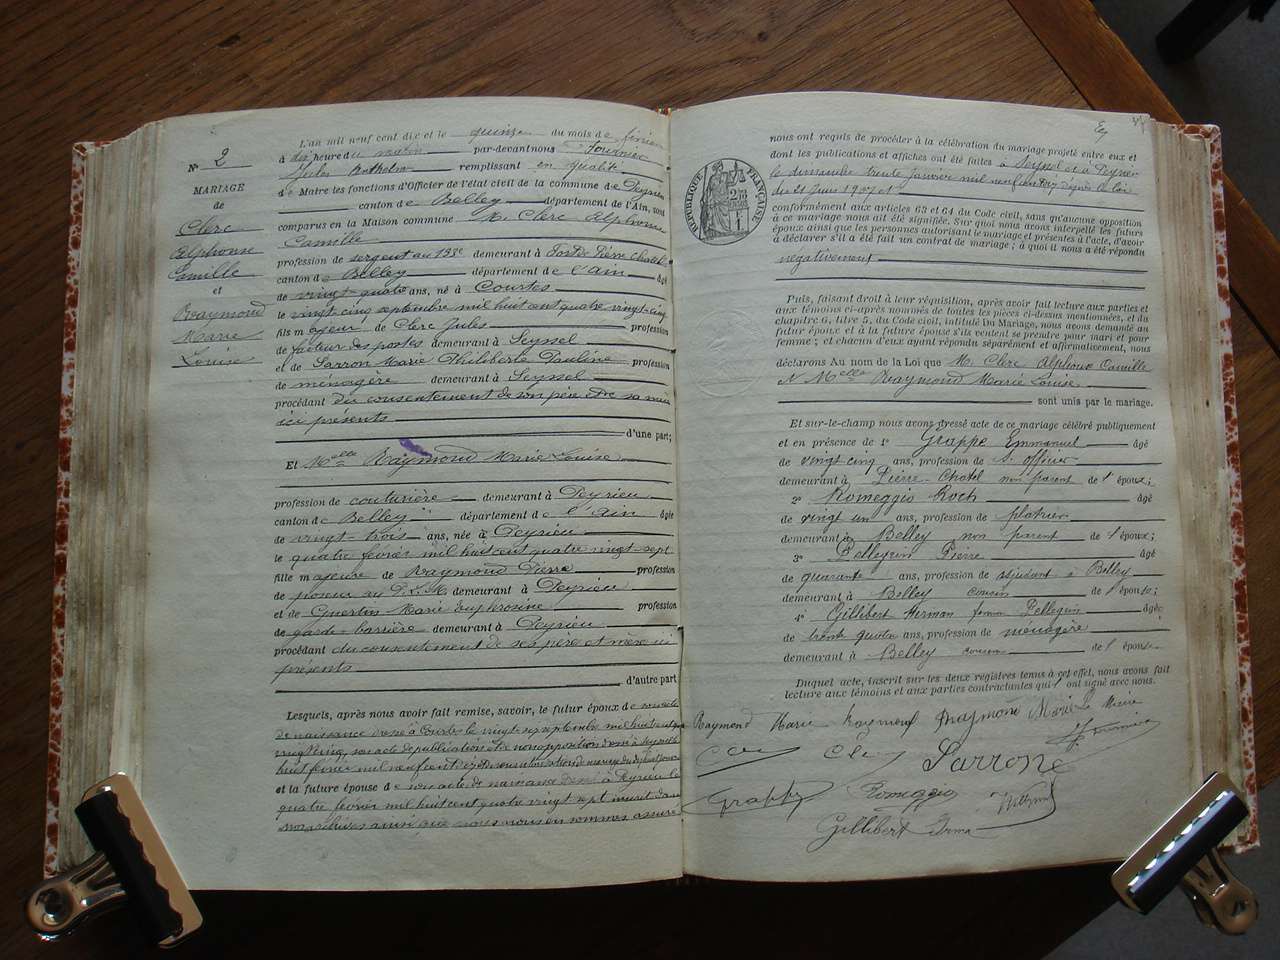 Nº 2
MARIAGE
de
Clerc
Alphonse
Camille
et
Raymond
Marie
Louise
L'an mil neuf cent dix et le quinze du mois de février
à dix heure du matin par-devant nous Fournier
Jules Anthelme remplissant en qualité
de Maire les fonctions d'Officier de l'état civil de la commune de Peyrieu
canton de Belley département de l'Ain, sont
comparus en la Maison commune M. Clerc Alphonse
Camille
profession de sergent au 133e demeurant à Fort de Pierre Chatel
canton de Belley département de l'Ain âgé
de vingt-quatre ans, né à Courtes
le vingt cinq septembre mil huit cent quatre vingt-cinq
fils majeur de Clerc Jules profession
de facteur des postes demeurant à Seyssel
et de Sarron Marie Philiberte Pauline profession
de ménagère demeurant à Seyssel
procédant du consentement de son père et de sa mère
ici présents
d'une part;
Et Melle Raymond Marie Louise
profession de couturière demeurant à Peyrieu
canton de Belley département de l'Ain âgée
de vingt-trois ans, née à Peyrieu
le quatre février mil huit cent quatre vingt-sept
fille majeure de Raymond Pierre profession
de poseur au P.L.M. demeurant à Peyrieu
et de Guertin Marie Euphrosine profession
de garde-barrière demeurant à Peyrieu
procédant du consentement de ses père et mère ici
présents
d'autre part
Lesquels, après nous avoir fait remise, savoir, le futur époux de son acte
de naissance dressé à Courtes le vingt six septembre mil huit cent quatre
vingt cinq, son acte de publication et de non opposition dressé à Seyssel le
huit février mil neuf cent dix
et la future épouse de son acte de naissance dressé à Peyrieu le
quatre février mil huit cent quatre vingt sept inscrit dans
nos archives ainsi que nous nous en sommes assuré
RÉPUBLIQUE FRANÇAISE
nous ont requis de procéder à la célébration du mariage projeté entre eux et
dont les publications et affiches ont été faites à Seyssel et à Peyrieu
le dimanche trente janvier mil neuf cent dix
du 21 Juin 1907 et
conformément aux articles 63 et 64 du Code civil, sans qu'aucune opposition
à ce mariage nous ait été signifiée. Sur quoi nous avons interpellé les futurs
époux ainsi que les personnes autorisant le mariage et présentes à l'acte, d'avoir
à déclarer s'il a été fait un contrat de mariage; à quoi il nous a été répondu
négativement
Puis, faisant droit à leur réquisition, après avoir fait lecture aux parties et
aux témoins ci-après nommés de toutes les pièces ci-dessus mentionnées, et du
chapitre 6, titre 5, du Code civil, intitulé Du Mariage, nous avons demandé au
futur époux et à la future épouse s'ils veulent se prendre pour mari et pour
femme; et chacun d'eux ayant répondu séparément et affirmativement, nous
déclarons Au nom de la Loi que M. Clerc Alphonse Camille
& Melle Raymond Marie Louise
sont unis par le mariage.
Et sur-le-champ nous avons dressé acte de ce mariage célébré publiquement
et en présence de 1º Grappe Emmanuel âgé
de vingt-cinq ans, profession de S. officier
demeurant à Pierre-Chatel non parent de l'époux;
2º Romeggio Roch âgé
de vingt un ans, profession de platrier
demeurant à Belley non parent de l'époux;
3º Pellegrin Pierre âgé
de quarante ans, profession de adjudant à Belley
demeurant à Belley cousin de l'épouse;
4º Gillibert femme Pellegrin âgée
de trente quatre ans, profession de ménagère
demeurant à Belley cousine de l'épouse
Duquel acte, inscrit sur les deux registres tenus à cet effet, nous avons fait
lecture aux témoins et aux parties contractantes qui l'ont signé avec nous.
Raymond Marie Raymond Raymond Marie Le Maire
Clerc Clerc Sarron Fournier
Grappe Romeggio
Gillibert Irma